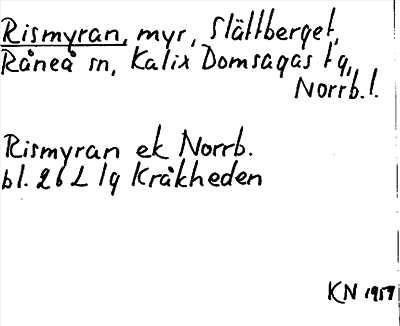 Rismyran, myr, Slättberget,
Råneå sn, Kalix Domsagas tg,
Norrb. l.
Rismyran ek Norrb.
bl. 26 L 1g Kråkheden
KN 1957